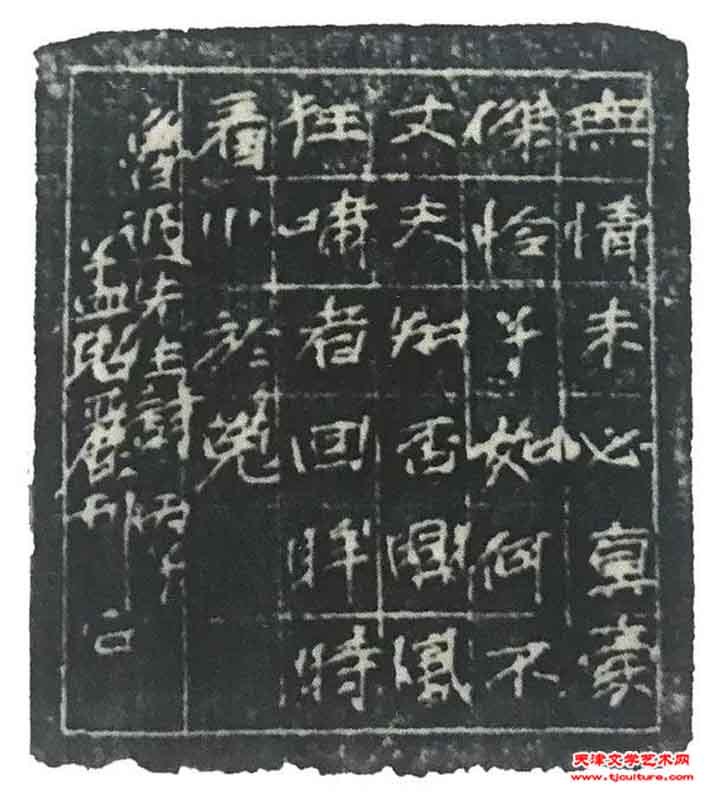 無情未必真豪
傑怜子如何不
丈夫知否興風
狂嘯者回眸時
看小於菟
魯迅先生詩
孟昭刊
天津文学艺术网
www.tjculture.com